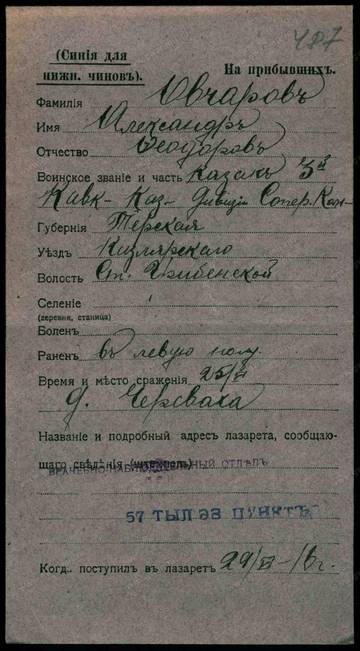 487
(Синія для
нижн. чиновъ).
На прибывшихъ.
Фамилія Овчаровъ
Имя Александръ
Отчество Ѳеодоровъ
Воинское званіе и часть казакъ 3й
Кавк- Каз- Дивизіи
Губернія Терская
Уѣздъ Кизлярскаго
Волость Ст. Гребенской
Селеніе
(деревня, станица)
Боленъ
Раненъ въ левую ногу.
Время и мѣсто сраженія 25/
д. Черсваха
Названіе и подробный адресъ лазарета, сообщаю-
щаго свѣдѣнія (штемпель)
ВРАЧЕБНО-НАБЛЮДАТЕЛЬНЫЙ ОТДѢЛЪ
57 ТЫЛ ЭВ ПУНКТЪ
Когд.. поступил въ лазаретъ 29/ -16 г.